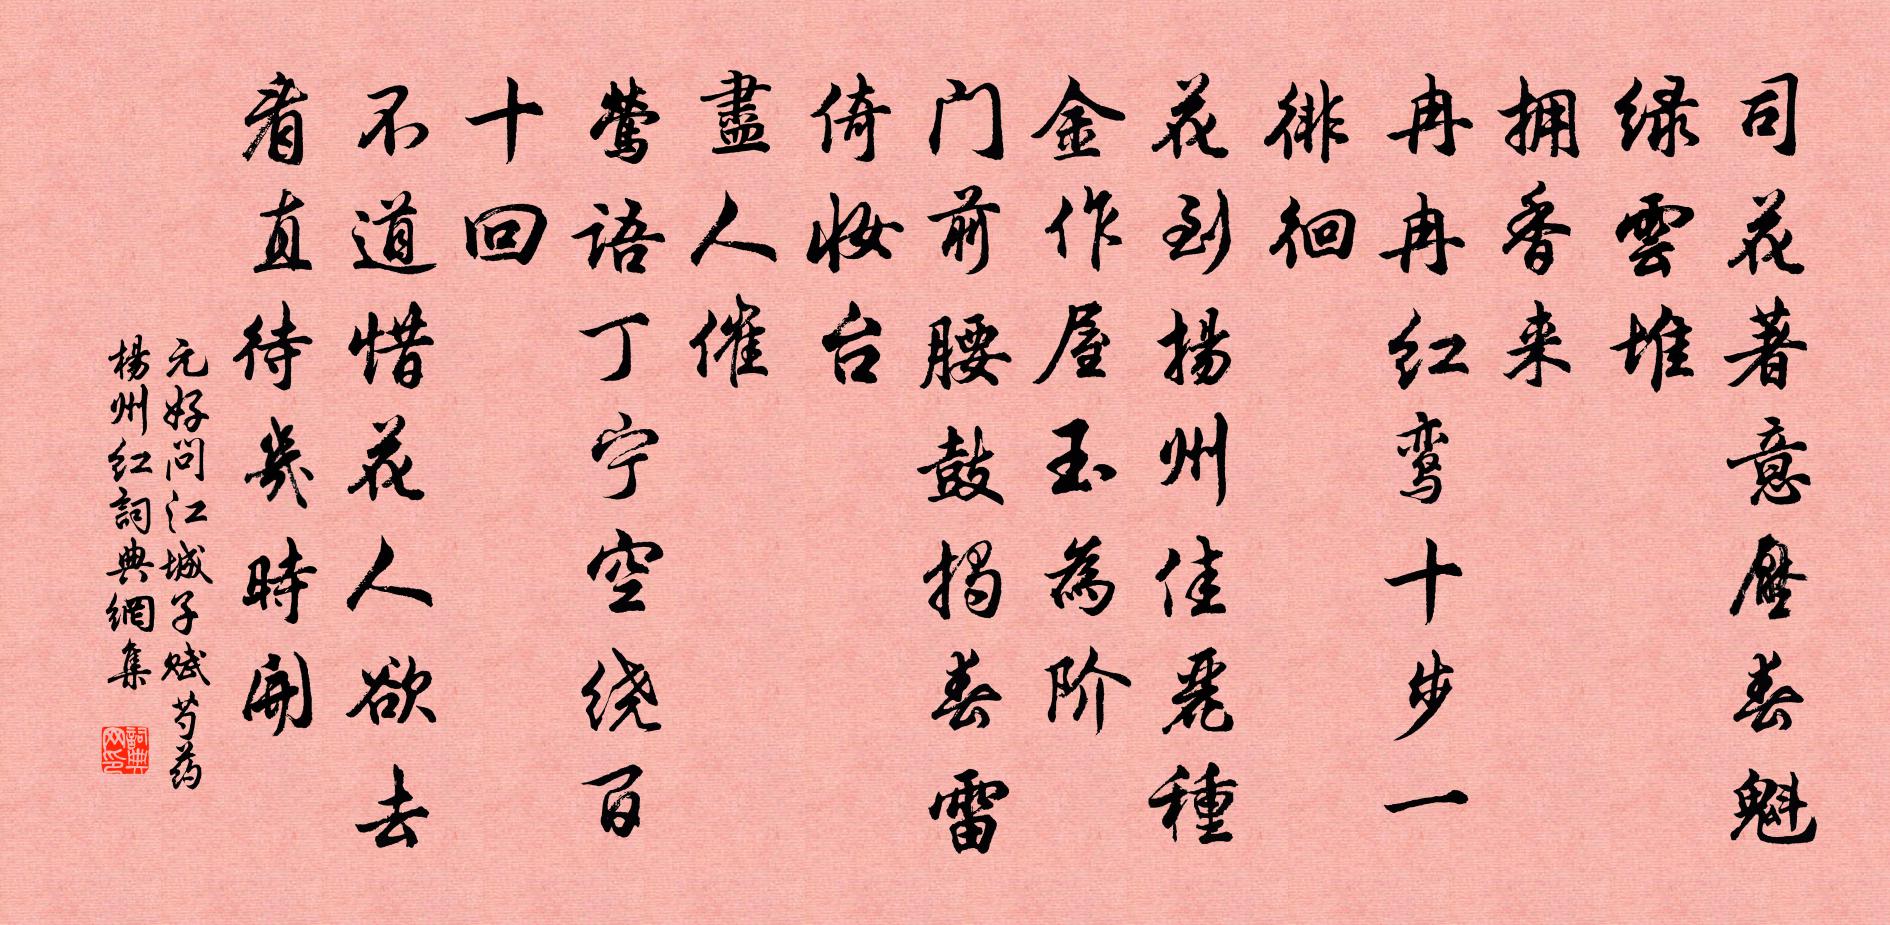 司花著意壓春魁
绿雲堆
拥香来
冉冉红鸾十步一
徘徊
花到揚州佳麗種
金作屋玉為阶
门前腰鼓揭春雷
倚妆台
盡人催
鶯語丁宁空绕百
十回
不道惜花人欲去
看直待幾時開
元好问江城子赋芍药
楊州红詞典網集
詞典网印